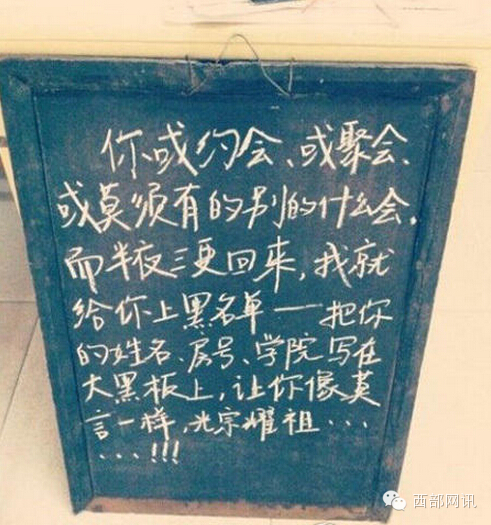 你或约会、或聚会、
或莫须有的别的什么会,
而半夜三更回来,我就
给你上黑名单——把你
的姓名、房号、学院写在
大黑板上,让你像莫
言一样,光宗耀祖...
...!!!
西部网讯